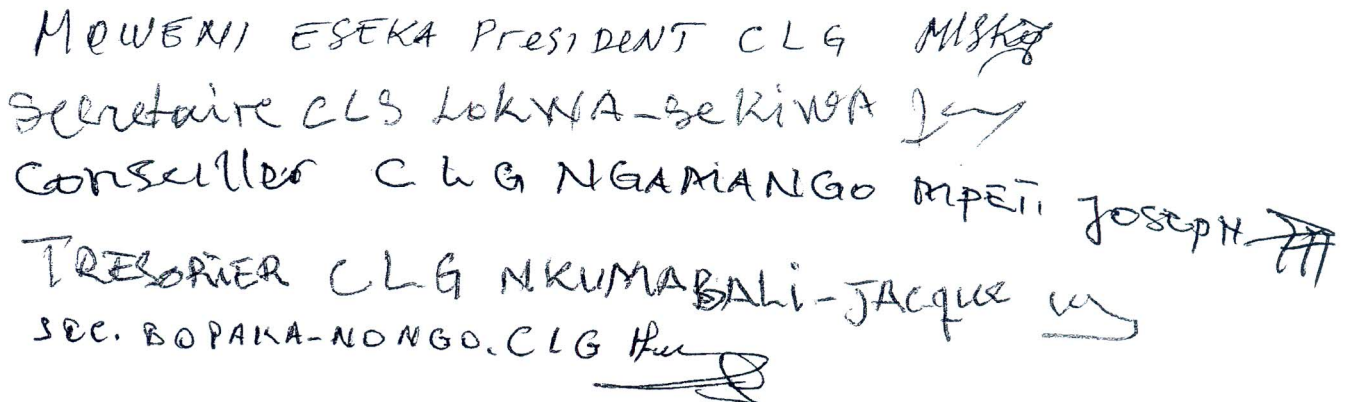 MOWENI ESEKA PresiDENT CLG
Secretaire CLS LOKWA-SEKIWA
Conseiller CLG NGAMANGO MPETI JOSEPH
TRESORIER CLG NKUMABALi-JAcque
sec. BOPAKA-NONGO. CLG